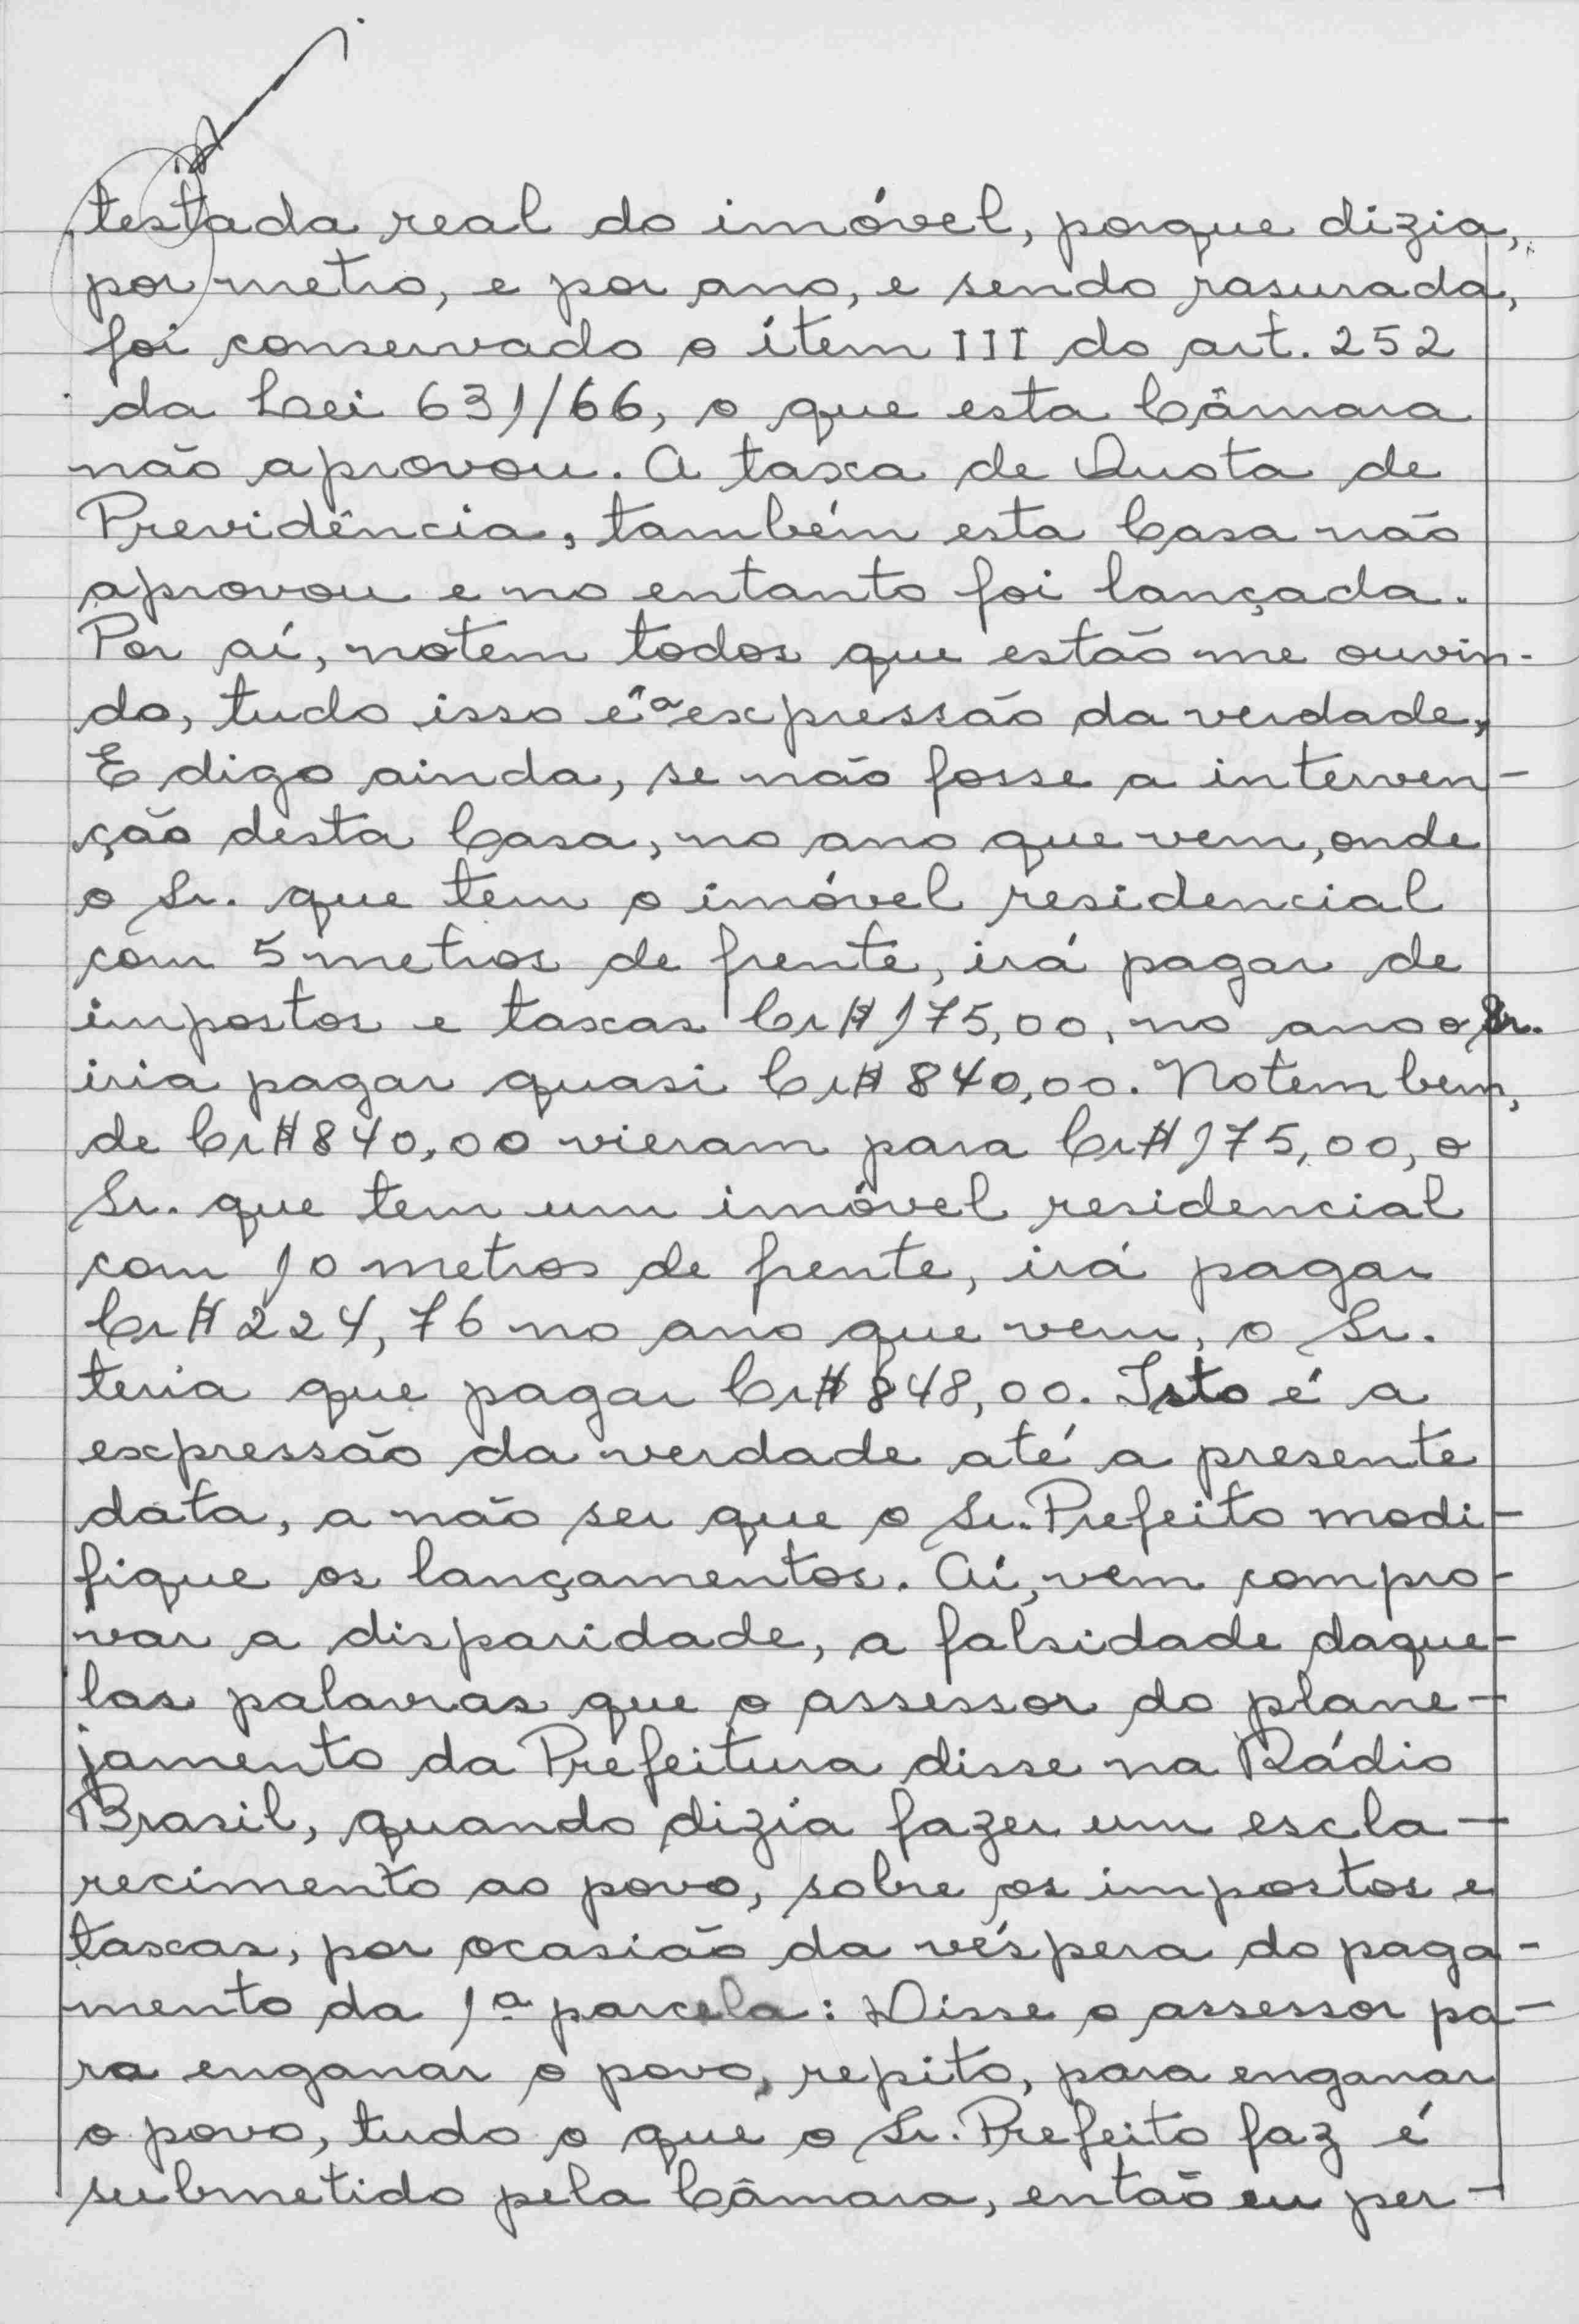 testada real do imóvel, porque dizia,
por metro, e por ano, e sendo rasurada,
foi conservado o ítem III do art. 252
da Lei 631/66, o que esta Câmara
não aprovou. A taxa de Quota de
Previdência, também esta Casa não
aprovou e no entanto foi lançada.
Por aí, notem todos que estão me ouvin-
do, tudo isso é a expressão da verdade,
E digo ainda, se não fosse a interven-
ção desta Casa, no ano que vem, onde
o Sr. que tem o imóvel residencial
com 5 metros de frente, irá pagar de
impostos e taxas Cr$ 175,00, no ano o Sr.
iria pagar quasi Cr$ 840,00. Notem bem,
de Cr$ 840,00 vieram para Cr$ 175,00, o
Sr. que tem um imóvel residencial
com 10 metros de frente, irá pagar
Cr$ 224,76 no ano que vem, o Sr.
teria que pagar Cr$ 848,00. Isto é a
expressão da verdade até a presente
data, a não ser que o Sr. Prefeito modi-
fique os lançamentos. Aí, vem compro-
var a disparidade, a falsidade daque-
las palavras que o assessor do plane-
jamento da Prefeitura disse na Rádio
Brasil, quando dizia fazer um escla-
recimento ao povo, sobre os impostos e
taxas, por ocasião da véspera do paga-
mento da 1ª parcela: Disse o assessor pa-
ra enganar o povo, repito, para enganar
o povo, tudo o que o Sr. Prefeito faz é
submetido pela Câmara, então eu per-